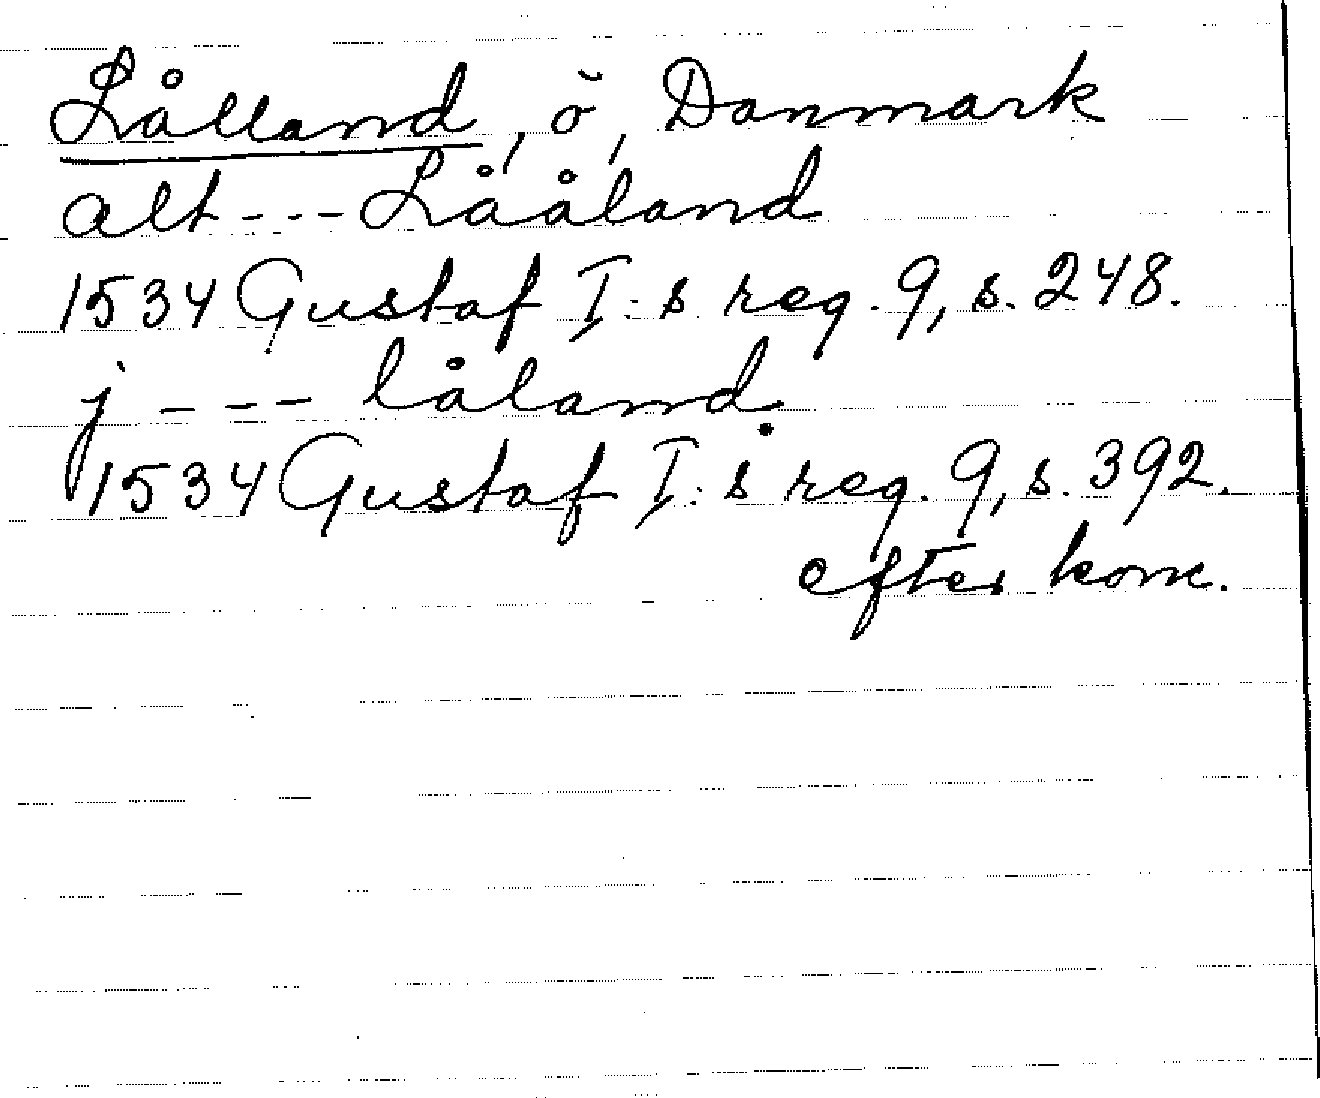 Lålland, ö, Danmark
alt --- Lååland
1534 Gustaf I:s reg. 9, s. 248.
j --- låland
1534 Gustaf I:s reg. 9, s. 392.
efter konc.